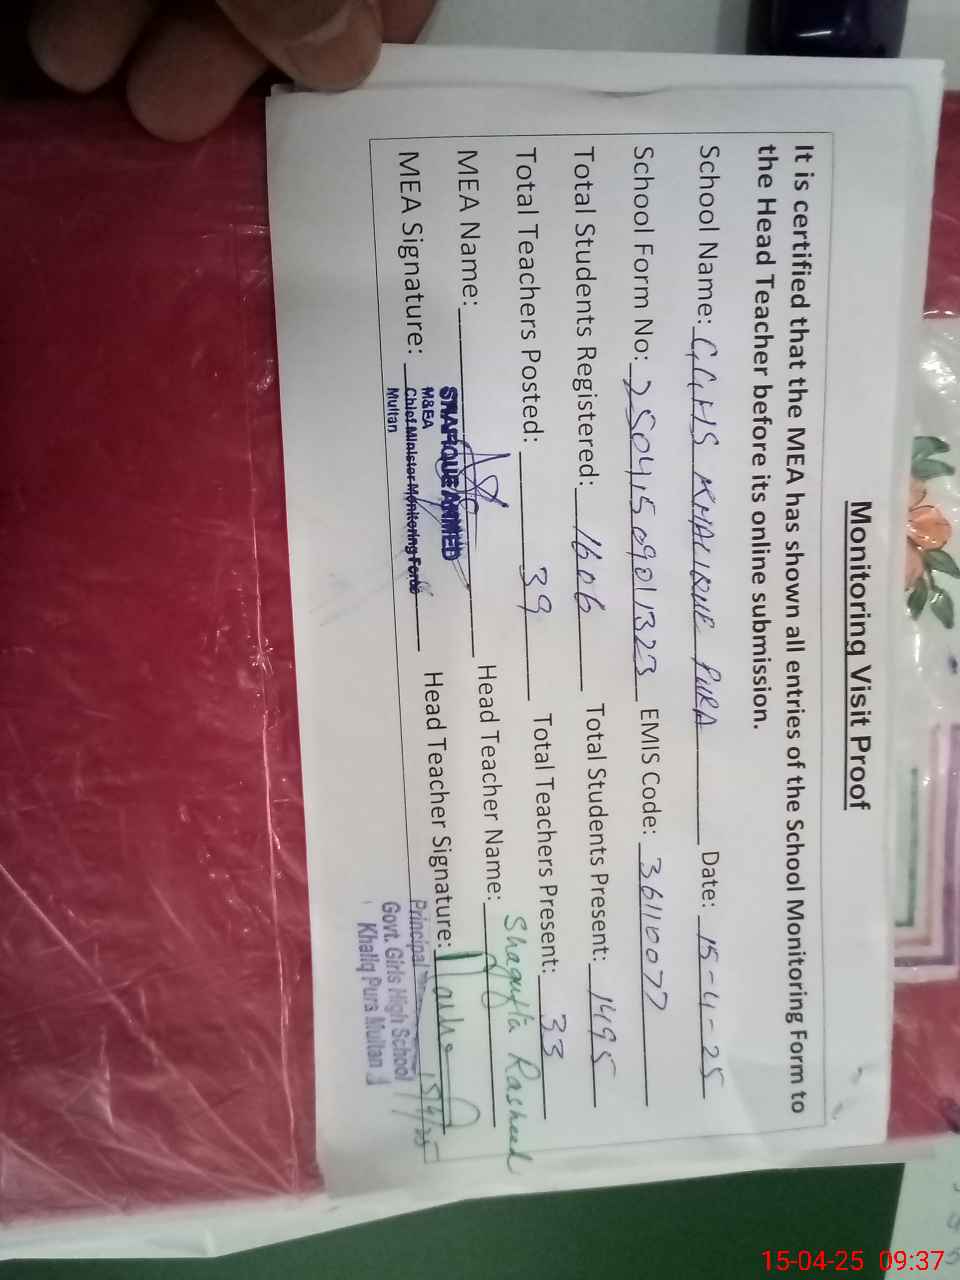 Monitoring Visit Proof
It is certified that the MEA has shown all entries of the School Monitoring Form to
the Head Teacher before its online submission.
School Name: G.G.HS KHALIQUE PURA Date: 15-4-25
School Form No: 25041509011323 EMIS Code: 36110077
Total Students Registered: 1606 Total Students Present: 1495
Total Teachers Posted: 39 Total Teachers Present: 33
MEA Name: Head Teacher Name: Shagufta Rasheed
SHAFIQUE AHMED
MEA Signature: Head Teacher Signature:
M&EA
Chief Minister Monitoring Force
Multan
Principal 15/4/25
Govt. Girls High School
Khaliq Pura Multan
15-04-25 09:37